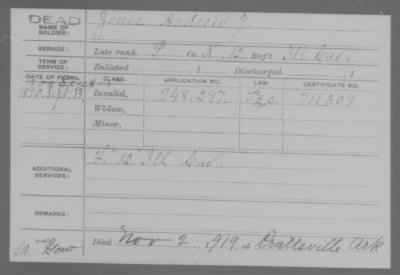 DEAD
NAME OF SOLDIER: Jones Andrew J.
SERVICE: Late rank, P Co. , 12 Reg't Ill Cav.
TERM OF SERVICE: Enlisted , 1 Discharged , 1
DATE OF FILING. CLASS. APPLICATION NO. LAW. CERTIFICATE NO.
1890 Sept 13 Invalid, 948.297. 711309
Widow,
Minor,
ADDITIONAL SERVICES: F. 12 Ill Cav
REMARKS:
Died Nov 2, 1919, at Prattsville Ark